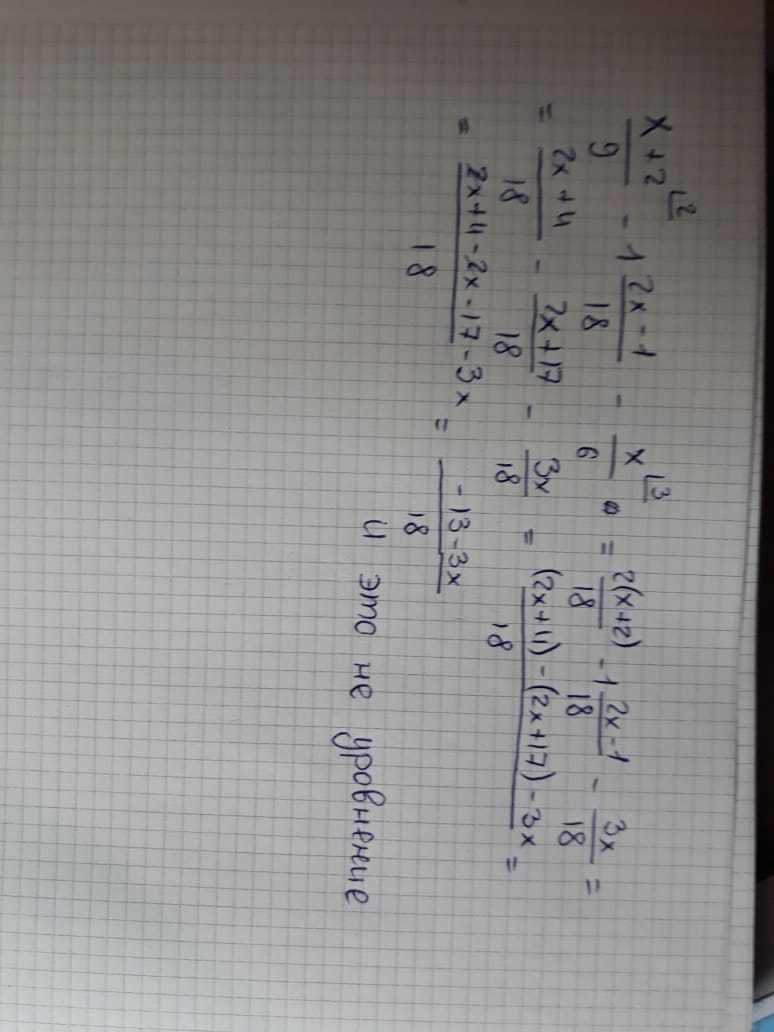 (x+2)/9 ⌊2 - 1 (2x-1)/18 - x/6 ⌊3 = 2(x+2)/18 - 1 (2x-1)/18 - 3x/18 =
= (2x+4)/18 - (2x+17)/18 - 3x/18 = ((2x+4)-(2x+17)-3x)/18 =
= (2x+4-2x-17-3x)/18 = (-13-3x)/18
и это не уровнение